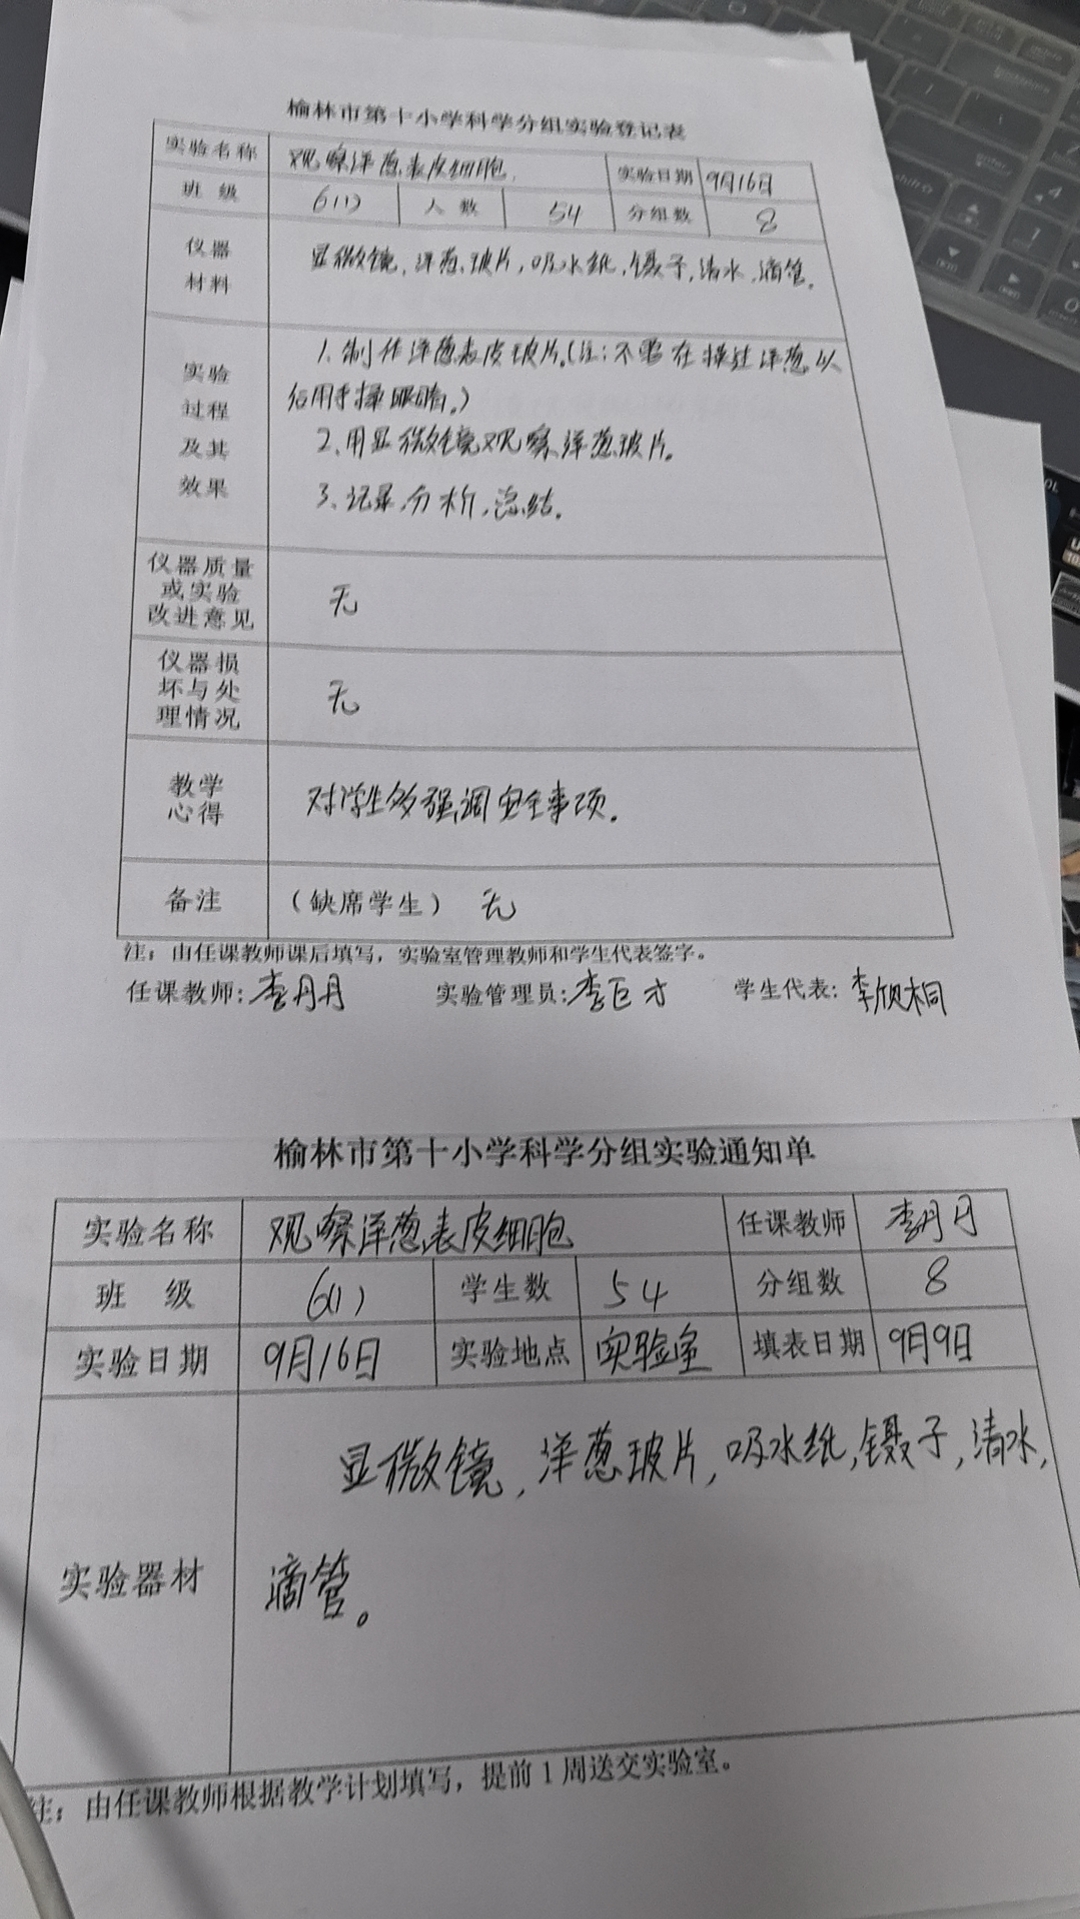 榆林市第十小学科学分组实验登记表
实验名称 观察洋葱表皮细胞. 实验日期 9月16日
班 级 6(1) 人 数 54 分组数 8
仪器材料 显微镜,洋葱,玻片,吸水纸,镊子,清水,滴管.
实验过程及其效果 1.制作洋葱表皮玻片.(注:不要在揉过洋葱以
后用手揉眼睛.)
2、用显微镜观察洋葱玻片.
3、记录,分析,总结.
仪器质量或实验改进意见 无
仪器损坏与处理情况 无
教学心得 对学生多强调安全事项.
备注 (缺席学生) 无
注:由任课教师课后填写,实验室管理教师和学生代表签字。
任课教师:李丹丹 实验管理员:李巨才 学生代表:李欣桐
榆林市第十小学科学分组实验通知单
实验名称 观察洋葱表皮细胞 任课教师 李丹丹
班 级 6(1) 学生数 54 分组数 8
实验日期 9月16日 实验地点 实验室 填表日期 9月9日
实验器材 显微镜,洋葱玻片,吸水纸,镊子,清水,
滴管。
注:由任课教师根据教学计划填写,提前1周送交实验室。